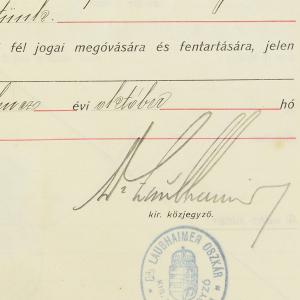 fél jogai megóvására és fentartására, jelen
évi október hó
Dr Laubhaimer
kir. közjegyző.
Dr. LAUBHAIMER OSZKÁR